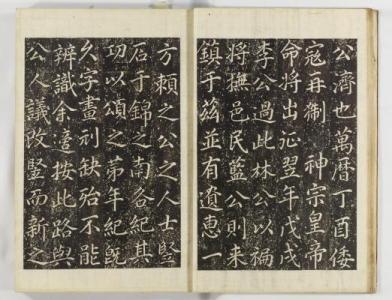 公濟也萬曆丁酉倭
寇再 神宗皇帝
命將出征翌年戊戌
李公過此林公以褊
將撫邑民籃公則来
鎮于茲並有遺惠一
方賴之公之人士竪
石于錦之南各紀其
功以頌之第年紀既
久字畫刓缺殆不能
辨識余嘗按此路與
公人議改竪而新之